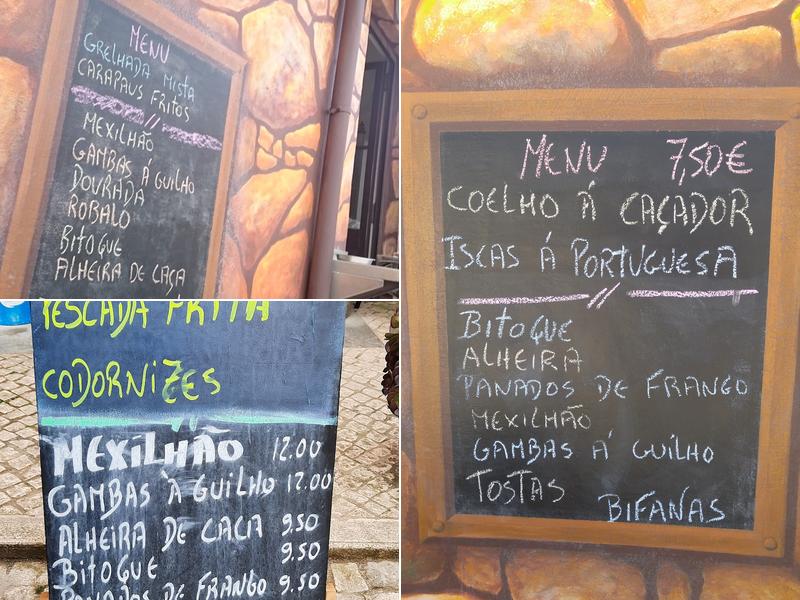 MENU
GRELHADA MISTA
CARAPAUS FRITOS
MEXILHÃO
GAMBAS Á GUILHO
DOURADA
ROBALO
BITOQUE
ALHEIRA DE CAÇA
PESCADA FRITA
CODORNIZES
MEXILHÃO 12.00
GAMBAS À GUILHO 12.00
ALHEIRA DE CAÇA 9.50
BITOQUE 9.50
PANADOS DE FRANGO 9.50
MENU 7,50€
COELHO Á CAÇADOR
ISCAS Á PORTUGUESA
BITOQUE
ALHEIRA
PANADOS DE FRANGO
MEXILHÃO
GAMBAS Á GUILHO
TOSTAS
BIFANAS